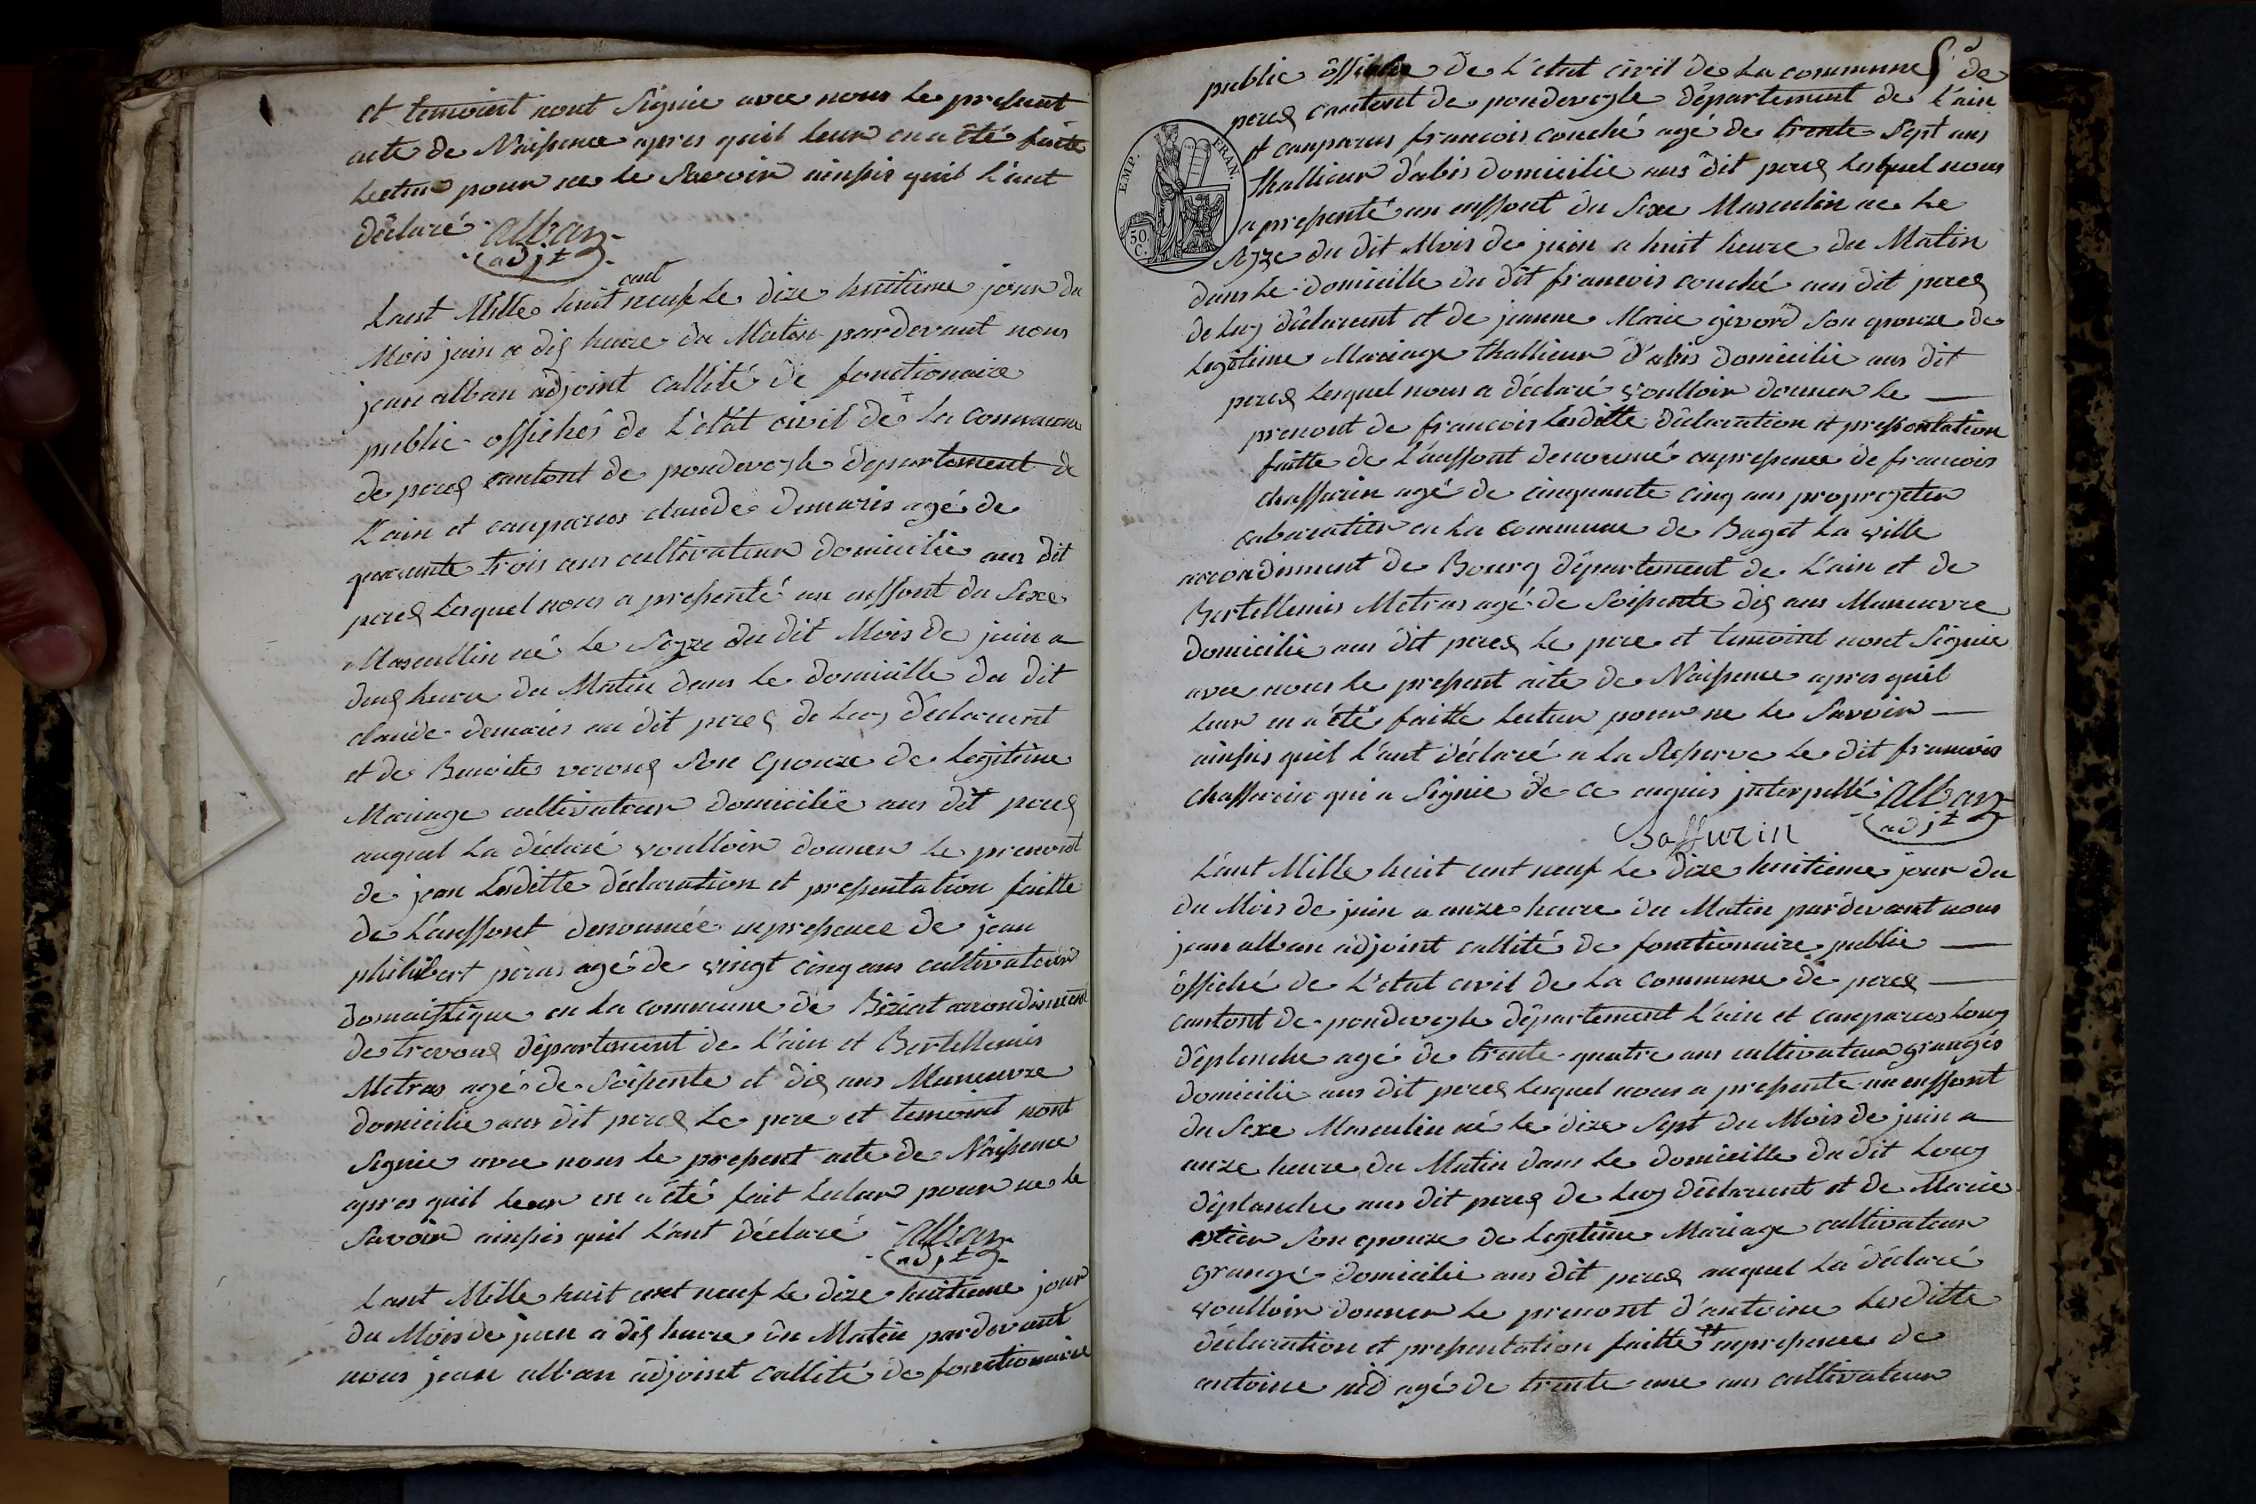 et temoint nont Signie avec nous le present
acte de Naissence apres quil leur en a été faite
lectur pour ne le Savoir ainsis quil l'ant
déclaré alban
adjt
cent
Lant Mille huit neuf le dize huitieme jour du
Mois juin a dis heure du Matin pardevant nous
jean alban adjoint callité de fonctionaire
public offichés de L'état civil de la commune
de peres cantont de pondevesle département de
L'ain et comparus claude demaris agé de
quarante trois ans cultivateur domicilie aus dit
peres lesquel nous a pressenté un enffont du Sexe
Masculin né le Sezze du dit Mois de juin a
deus heure du Matin dans le domicille du dit
claude demaris au dit peres de luy déclarent
et de Benoite verons Son epouze de legitime
Mariage cultivateur domicilie aus dit peres
auquel la déclaré voulloir donner le prenont
de jean Lesditte déclaration et pressentation faitte
de L'anffont denoumée enpressence de jean
philibert péras agé de vingt cinq ans cultivateur
domaistique en la commune de Biziat arrondisment
de trevous département de L'ain et Bertellemis
Metras agé de Soissente et dis ans Maneuvre
domicilie aus dit peres le pere et temoint nont
Signie avec nous le present acte de Naissence
apres quil leur en a été fait lectur pour ne le
Savoir ainsis quil L'ant déclaré alban
adjt
Lant Mille huit cent neuf le dize huitieme jour
du Mois de juin a dis heure du Matin pardevant
nous jean alban adjoint callité de fonctionaire
public officihe de L'etat civil de la commune de
peres cantont de pondevesle département de L'ain
EMP. FRAN.
50 C.
et comparus francois couché agé de trente Sept ans
thallieur d'abis domicilie aus dit peres lesquel nous
a pressenté un enffont du Sexe Masculin ne le
Sezze du dit Mois de juin a huit heure du Matin
dans le domicille du dit francois couché aus dit peres
de luy déclarent et de jeanne Marie givord Son epouze de
legitime Mariage thallieur d'abis domicilie aus dit
peres lesquel nous a déclaré voulloir donner le
prenont de francois Lesditte déclaration et pressentation
faitte de L'anffont denoumé enpressence de francois
chaffurin agé de cinquante cinq ans propryeter
cabaratier en la commune de Baget la ville
arrondisment de Bourg département de L'ain et de
Bertellemis Metras agé de Soissente dis ans Maneuvre
domicilie aus dit peres le pere et temoint nont Signie
avec nous le present acte de Naissence apres quil
leur en a été faitte lectur pour ne le Savoir
ainsis quil L'ant déclaré a la Reserve le dit francois
chaffurin qui a Signie de ce enquis jnterpellé alban
Saffurin adjt
L'ant Mille huit cent neuf le dize huitieme jour du
du Mois de juin a onze heure du Matin pardevant nous
jean alban adjoint callité de fonctionaire public
officihé de L'etat civil de la Commune de peres
cantont de pondevesle département L'ain et comparus Louy
déplenche agé de trente quatre ans cultivateur grangés
domicilie aus dit peres lesquel nous a pressente un enffont
du Sexe Masculin né le dize Sept du Mois de juin a
onze heure du Matin dans le domicille du dit Louy
déplanche aus dit peres de luy déclarent et de Marie
Son epouze de legitime Mariage cultivateur
grangé domicilie aus dit peres auquel la déclaré
voulloir donner le prenont d'antoine Lesditte
déclaration et pressentation faitte enpressence de
antoine agé de trente une ans cultivateur